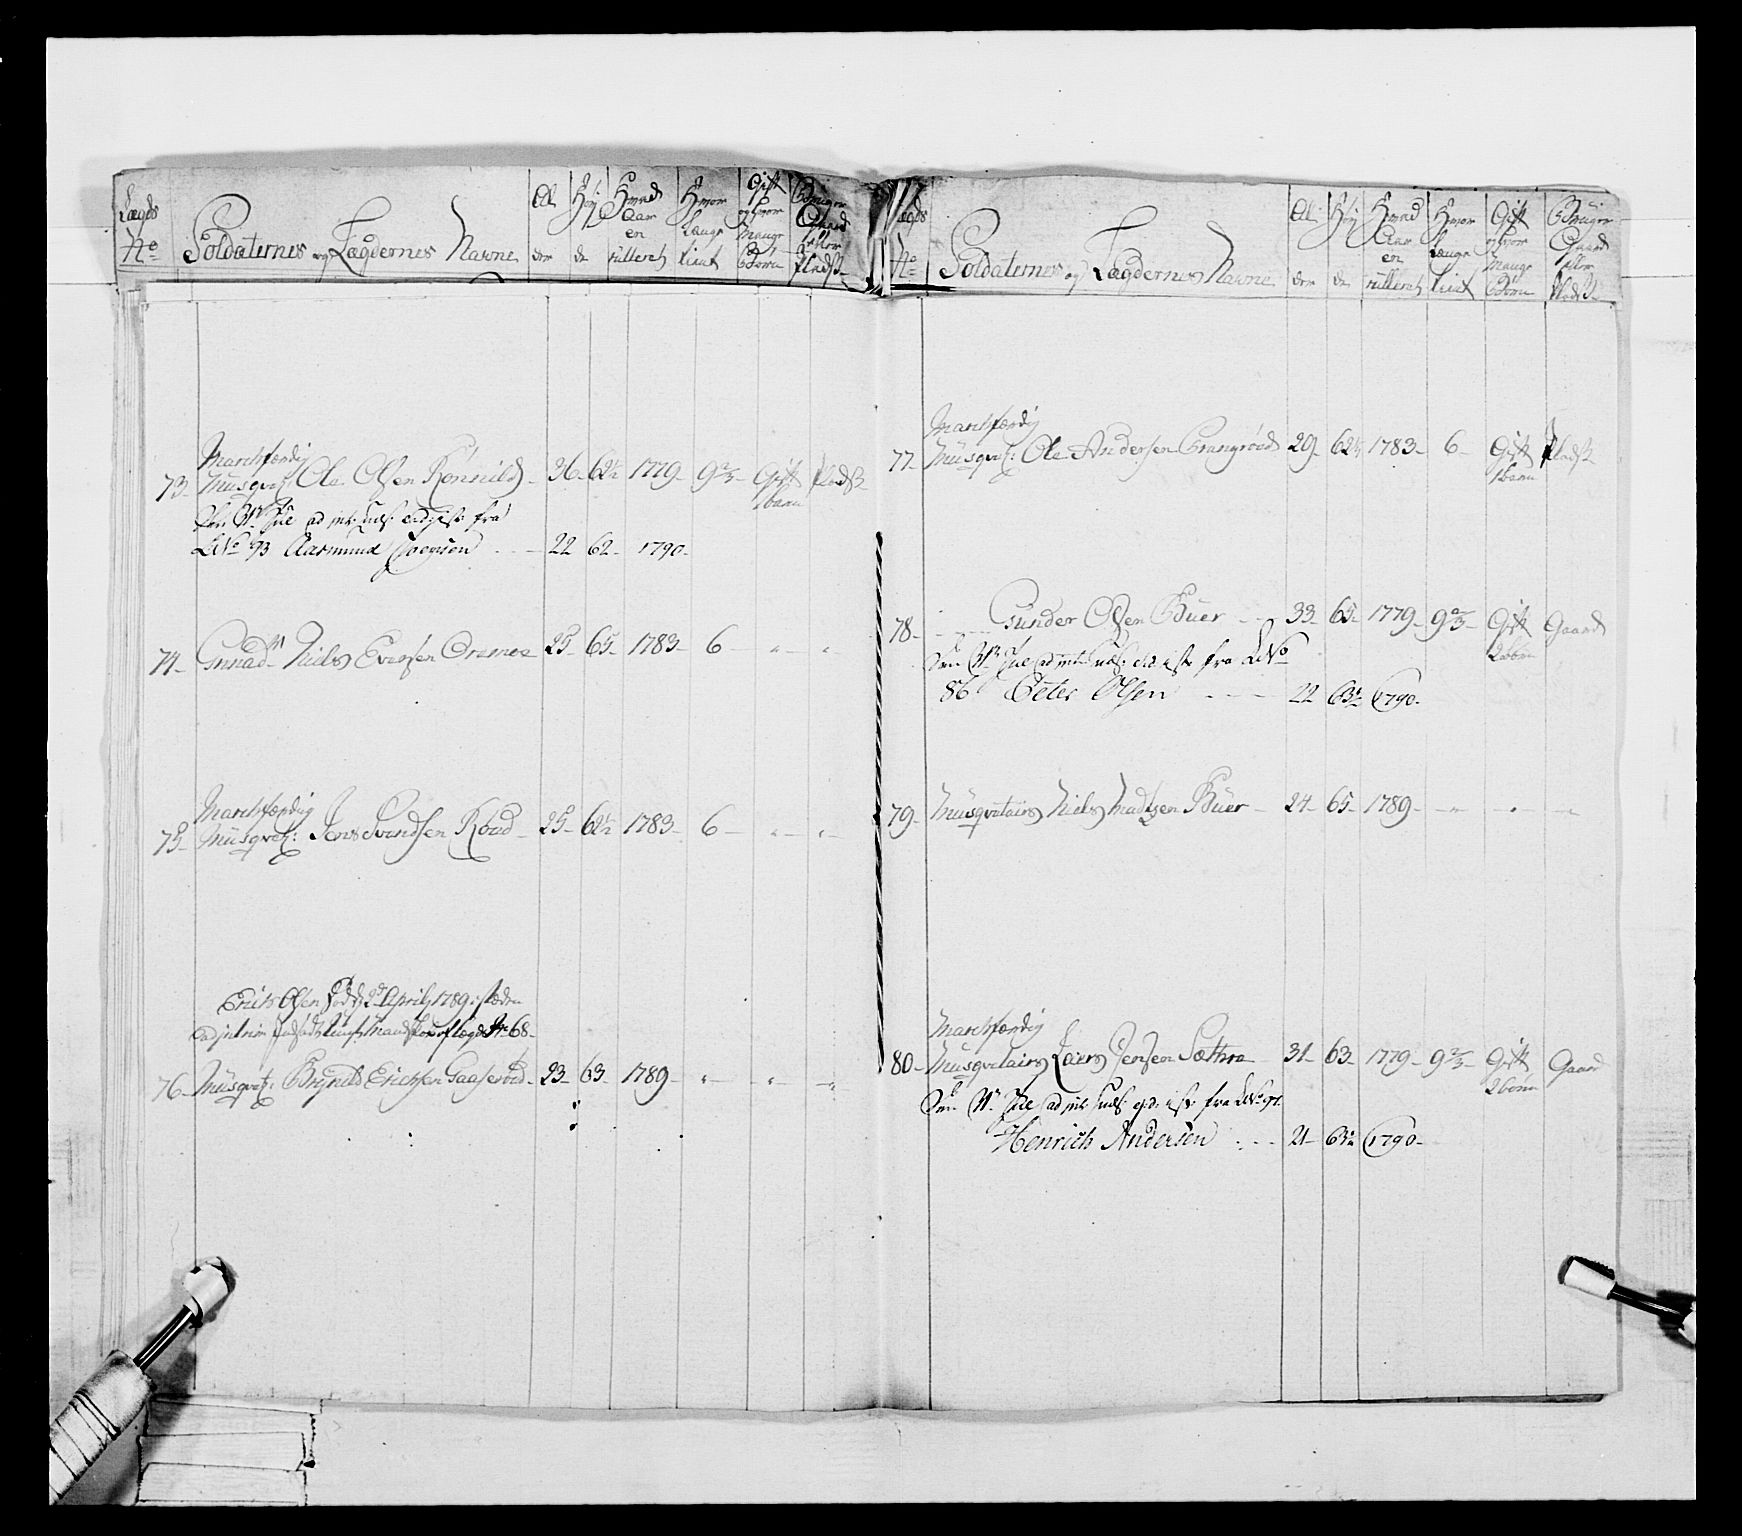 Lægds No Soldaternes og Lægdernes Navne Alder Høyde Hvad Aar enrulleret Hvor Længe tient Gift og hvor Mange Børn Bruger Gaard eller Pladß
Marchfærdig
73 Musqvet: Ole Olsen Rønnild 36 62½ 1779 9⅔ Gift 1 barn Pladß
fra
No 93 Aasmund 22 62 1790
74 Niels Evensen 25 65 1783 6 " "
Marchfærdig
75 Musqvet: Jens Svendsen Roed 25 62½ 1783 6 " "
Erich Olsen død d 2d April 1789, i stæden
Lægd No 68
76 Musqvet: Brynild Erichsen Gaaserød 23 63 1789 " " "
Lægds No Soldaternes og Lægdernes Navne Alder Høyde Hvad Aar enrulleret Hvor Længe tient Gift og hvor Mange Børn Bruger Gaard eller Pladß
Marchfærdig
77 Musqvet: Ole Andersen 29 62½ 1783 6 Gift 1 barn Pladß
78 Gunder Olsen Buer 33 65 1779 9⅔ Gift 2 børn Gaard
fra LNo
86 Peter Olsen 22 63½ 1790
79 Musqvetair Niels Madtzen Buer 24 65 1789 " " "
Marchfærdig
80 Musqvetair Lars Jensen Sæthre 31 63 1779 9⅔ Gift 2 børn Gaard
fra LNo 91
Henrich Andersen 21 63½ 1790